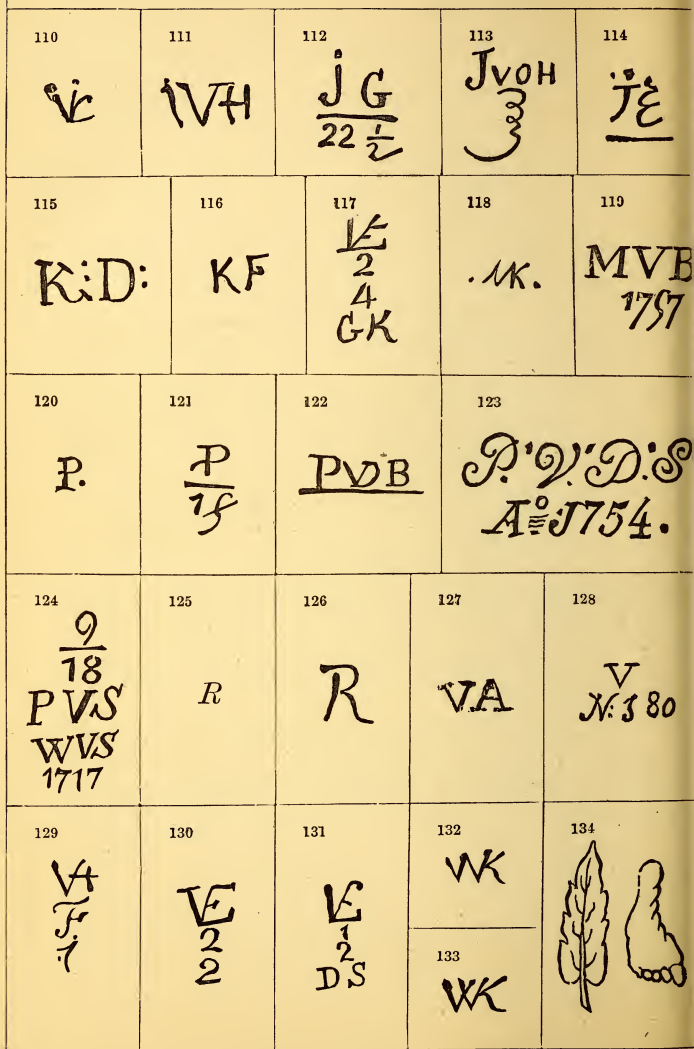 110
111
IVH
112
j G
22 1/2
113
JVOH
114
115
K:D:
116
KF
117
VE
2
4
GK
118
.MK.
119
MVB
1757
120
P.
121
P
15
122
PVB
123
P.V.D.S
Ao J754.
124
9
18
PVS
WVS
1717
125
R
126
R
127
VA
128
V
N: 3 80
129
VA
F.
1
130
VE
2
2
131
VE
1
2
DS
132
WK
133
WK
134